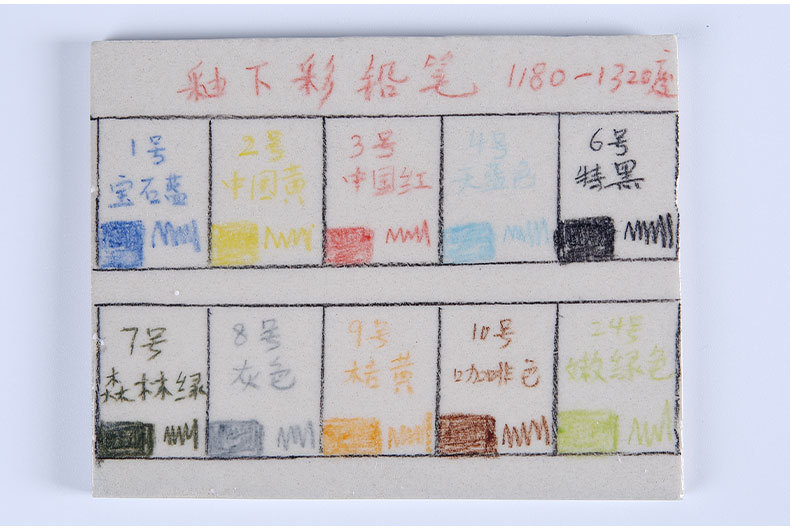 釉下彩铅笔 1180-1320度
1号
宝石蓝
2号
中国黄
3号
中国红
4号
天蓝色
6号
特黑
7号
森林绿
8号
灰色
9号
桔黄
10号
咖啡色
24号
嫩绿色